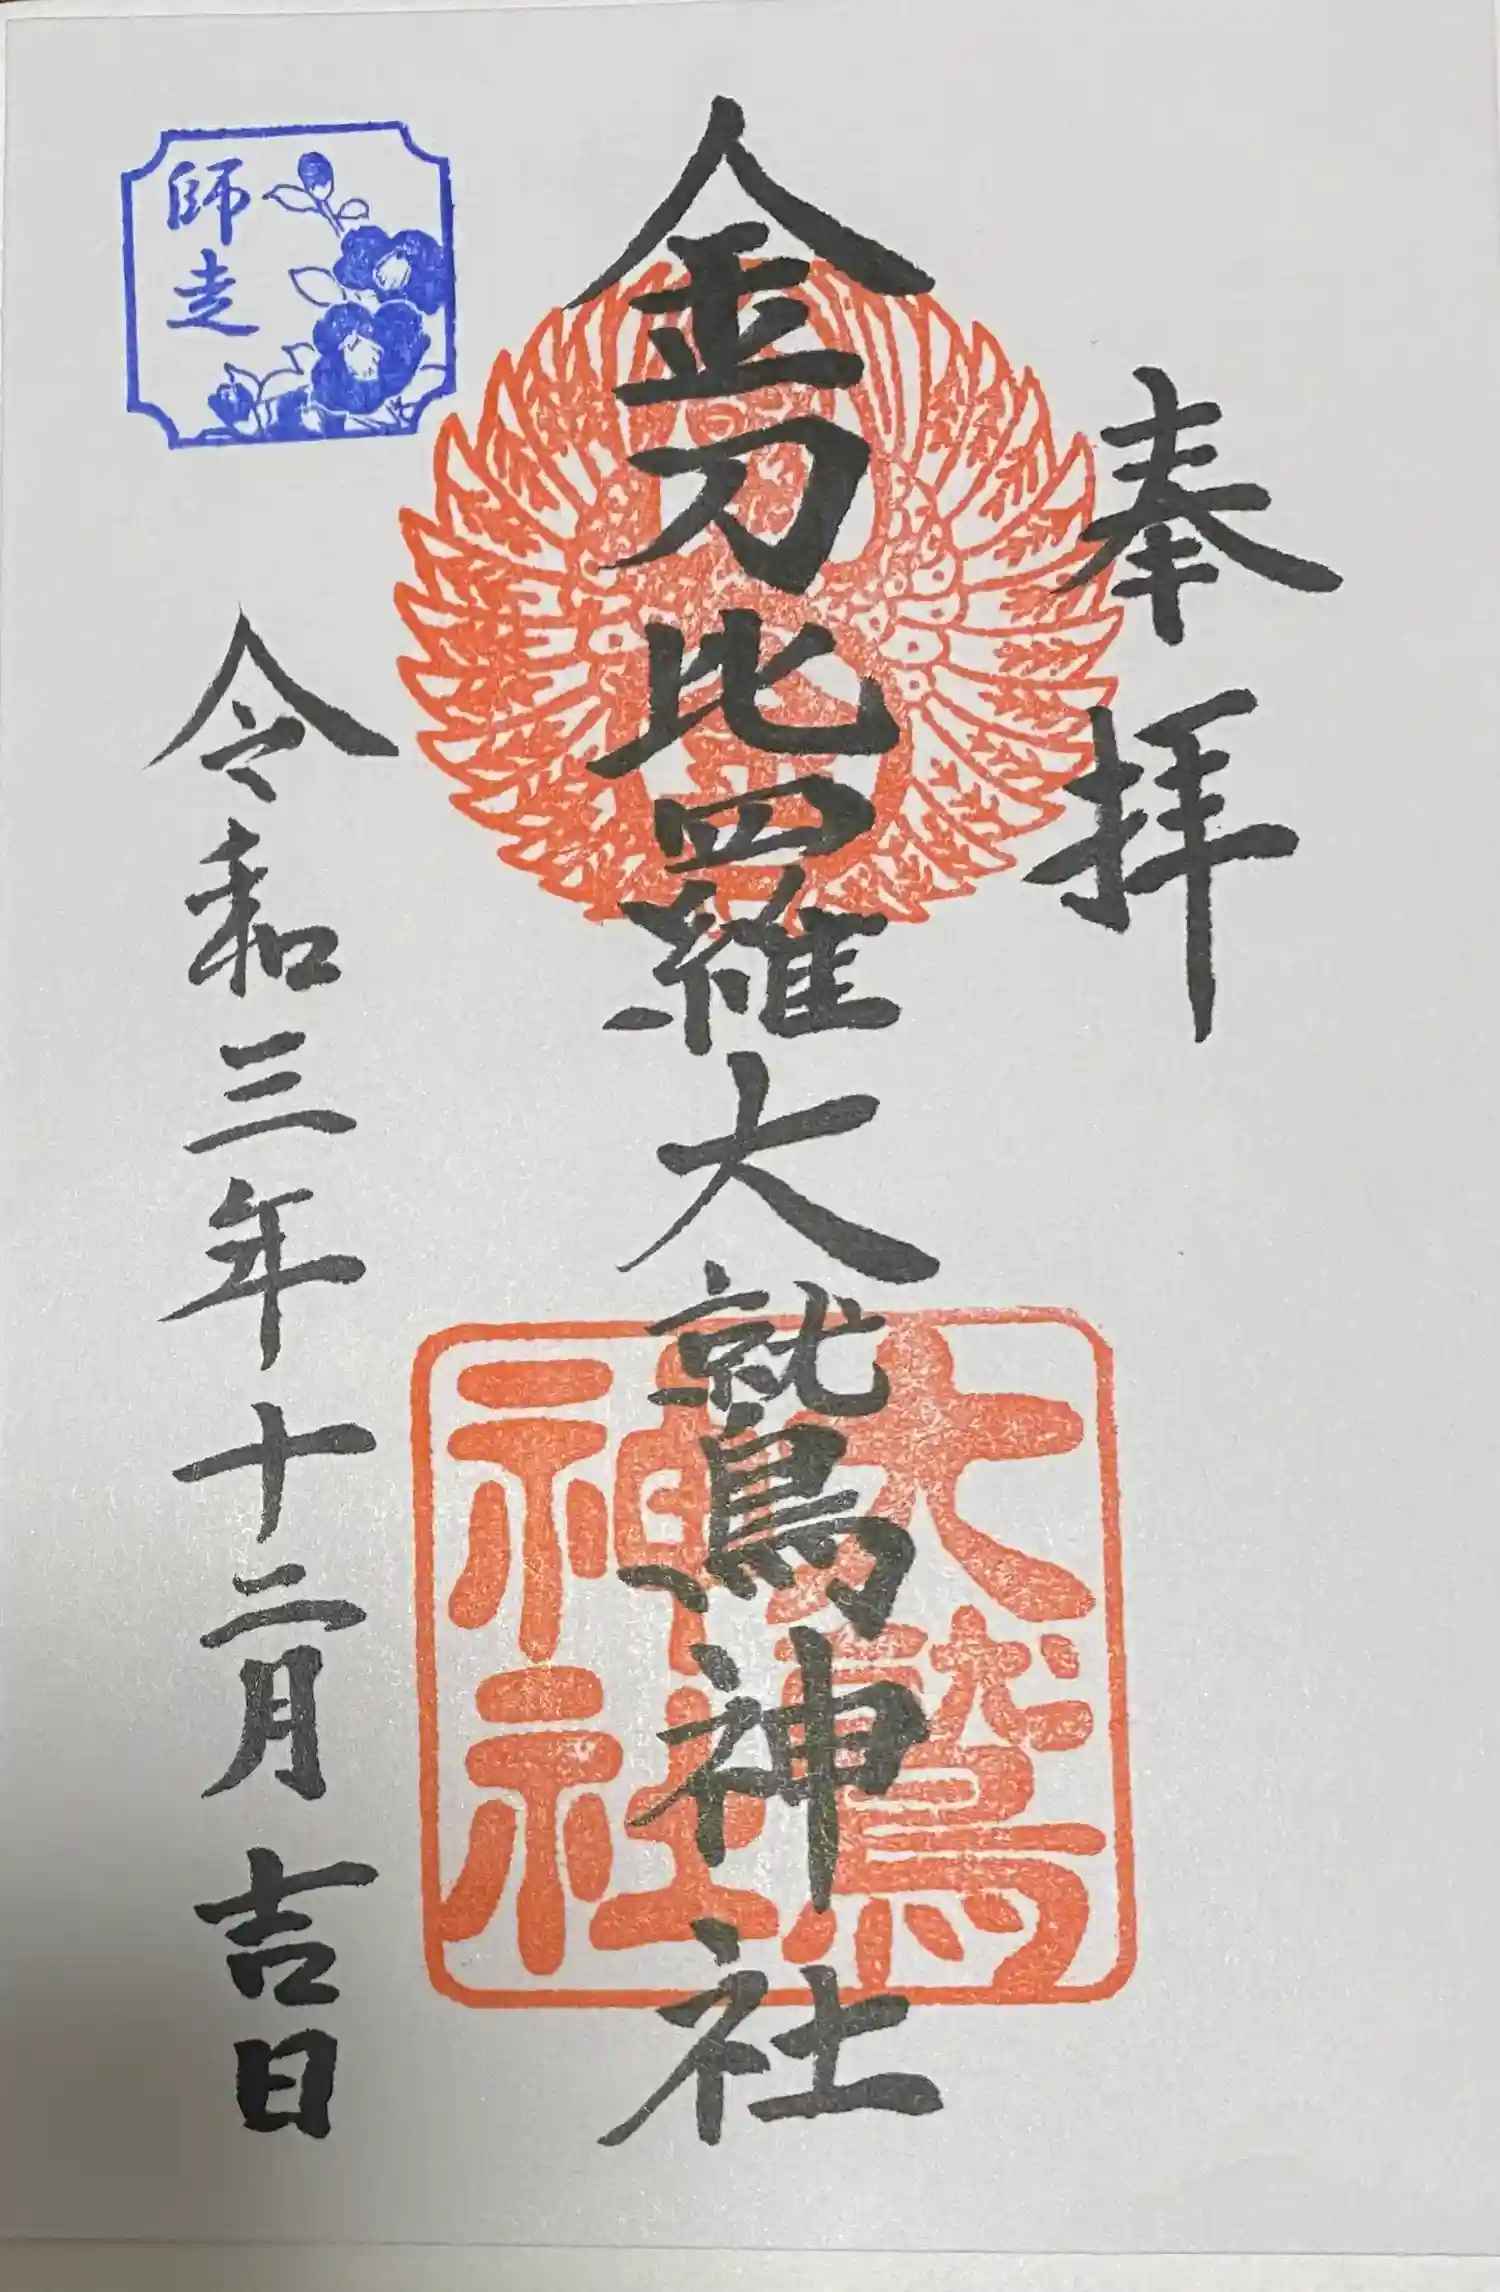 奉拝
金刀比羅大鷲神社
大鷲
神社
令和三年十二月吉日
師走